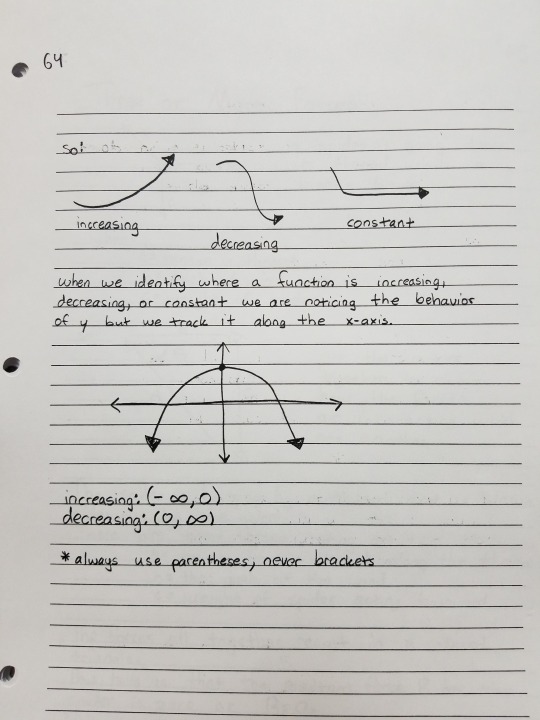 64
so:
increasing
decreasing
constant
when we identify where a function is increasing,
decreasing, or constant we are noticing the behavior
of y but we track it along the x-axis.
increasing: (-∞,0)
decreasing: (0,∞)
*always use parentheses, never brackets